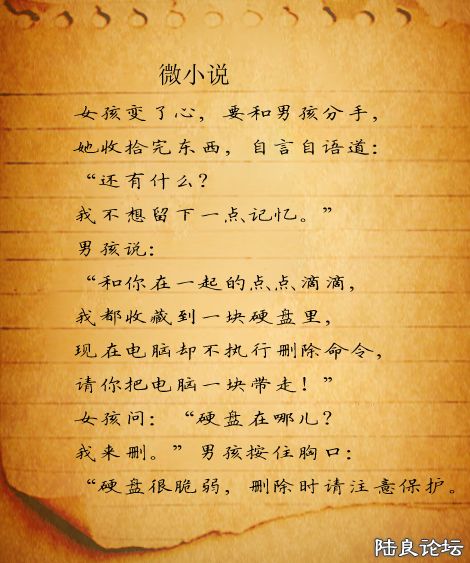 微小说
女孩变了心，要和男孩分手，
她收拾完东西，自言自语道：
“还有什么？
我不想留下一点记忆。”
男孩说：
“和你在一起的点点滴滴，
我都收藏到一块硬盘里，
现在电脑却不执行删除命令，
请你把电脑一块带走！”
女孩问：“硬盘在哪儿？
我来删。”男孩按住胸口：
“硬盘很脆弱，删除时请注意保护。
陆良论坛